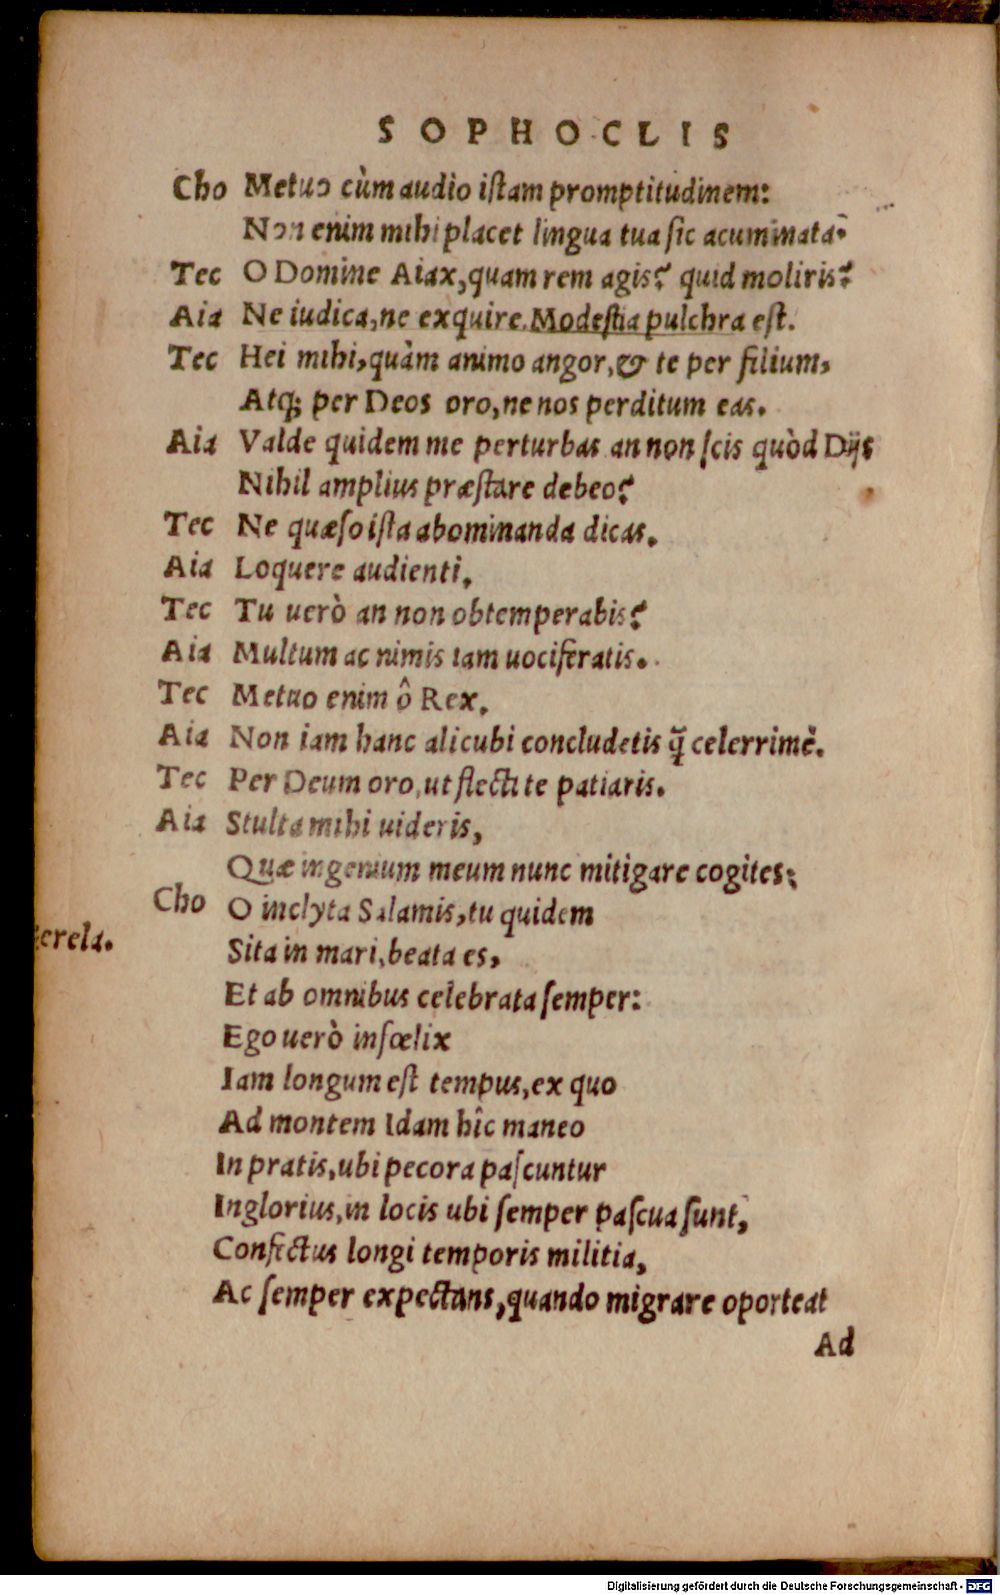 SOPHOCLIS
Cho Metuo cùm audio iſtam promptitudinem:
Non enim mihi placet lingua tua ſic acuminata.
Tec O Domine Aiax, quam rem agis? quid moliris?
Aia Ne iudica, ne exquire. Modeſtia pulchra eſt.
Tec Hei mihi, quàm animo angor, & te per filium,
Atq; per Deos oro, ne nos perditum eas.
Aia Valde quidem me perturbas an non ſcis quòd Dijs
Nihil amplius præſtare debeo?
Tec Ne quæſo iſta abominanda dicas.
Aia Loquere audienti.
Tec Tu uerò an non obtemperabis?
Aia Multum ac nimis iam uociferatis.
Tec Metuo enim ô Rex.
Aia Non iam hanc alicubi concludetis q̃ celerrimè.
Tec Per Deum oro, ut flecti te patiaris.
Aia Stulta mihi uideris,
Quæ ingenium meum nunc mitigare cogites:
Cho O inclyta Salamis, tu quidem
erela.
Sita in mari, beata es,
Et ab omnibus celebrata ſemper:
Ego uerò infœlix
Iam longum eſt tempus, ex quo
Ad montem Idam hîc maneo
In pratis, ubi pecora paſcuntur
Inglorius, in locis ubi ſemper paſcua ſunt,
Confectus longi temporis militia,
Ac ſemper expectans, quando migrare oporteat
Ad
Digitalisierung gefördert durch die Deutsche Forschungsgemeinschaft - DFG